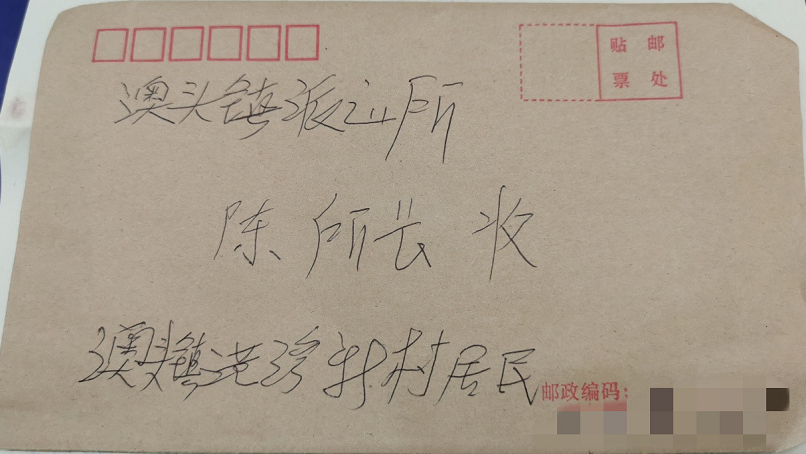 贴邮
票处
澳头镇派出所
陈所长 收
澳头镇港湾新村居民
邮政编码：